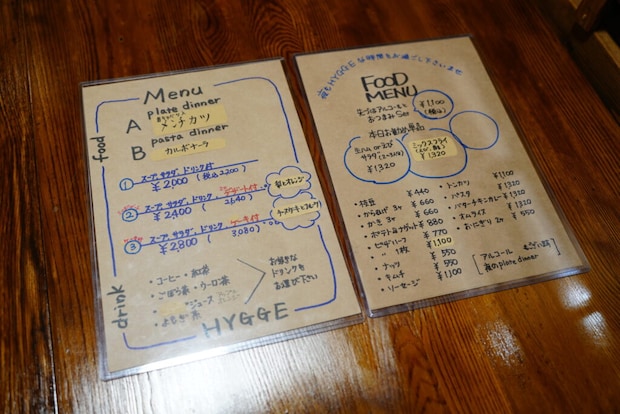 Menu
food
plate dinner
A メンチカツ
pasta dinner
B カルボナーラ
① スープ, サラダ, ドリンク付
¥2,000 (税込 2,200)
② スープ, サラダ, ドリンク, デザート付
¥2,400 (2,640)
③ スープ, サラダ, ドリンク, ケーキ付
¥2,800 (3,080)
drink
・コーヒー・紅茶
・ごぼう茶・ウーロン茶
ジュース
・よもぎ茶
お好きな
ドリンクを
お選び下さい
HYGGE
夜もHYGGEな時間をお過ごし下さいませ
FOOD
MENU
おつまみSet
¥1,100
(税込)
本日お勧め単品
サラダ
¥1,320
ミックスフライ
¥1,320
・枝豆 ¥440
・からあげ 3ヶ ¥660
・かき 3ヶ ¥660
・ポテト&ナゲット ¥880
・ピザハーフ ¥770
・〃 1枚 ¥1,100
・ナッツ ¥550
・キムチ ¥550
・ソーセージ ¥1,100
・トンカツ ¥1,100
・パスタ ¥1,320
・バターチキンカレー ¥1,320
・オムライス ¥1,320
・おにぎり 2ヶ ¥550
アルコール
夜のplate dinner
もございます